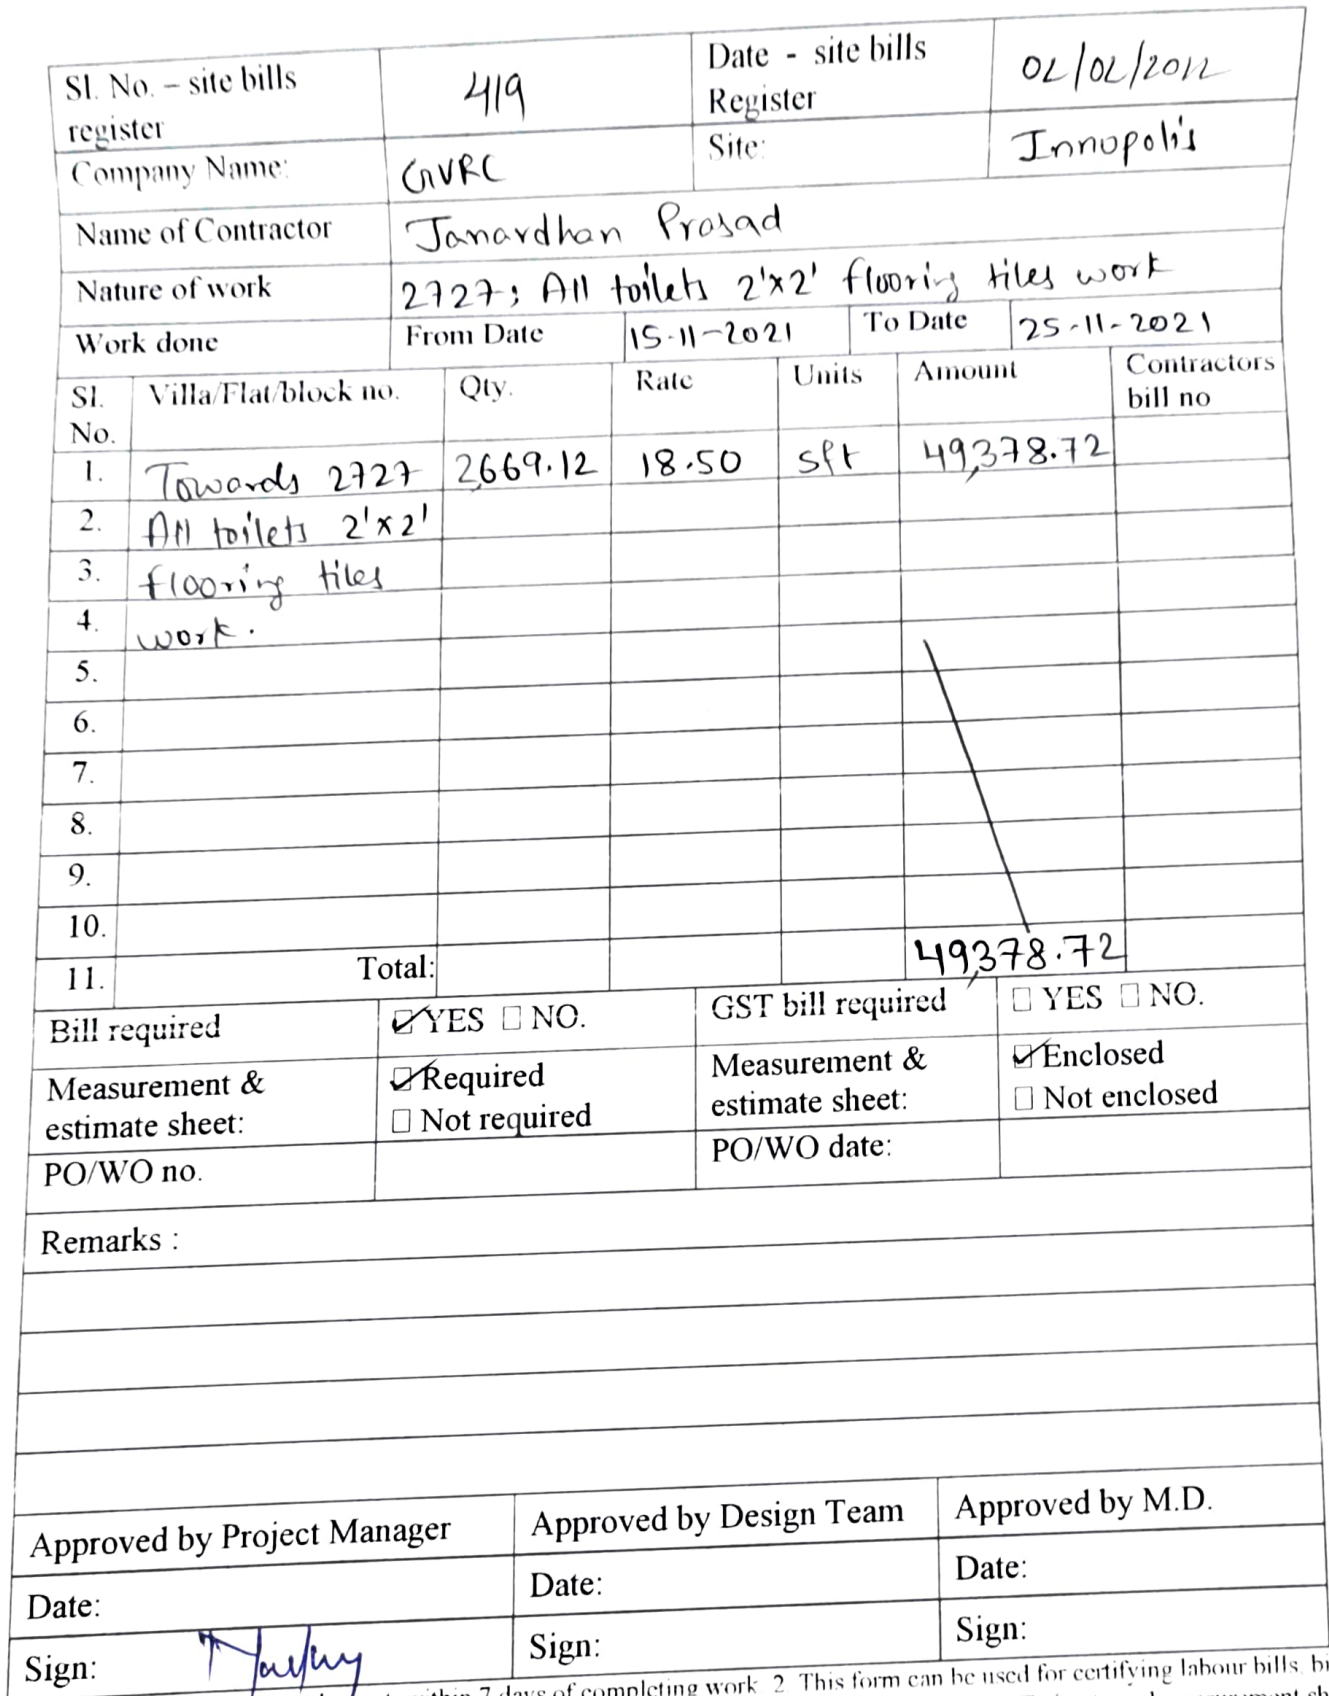 Sl. No. – site bills register 419 Date - site bills Register 02/02/2022
Company Name: GVRC Site: Innopolis
Name of Contractor Janardhan Prasad
Nature of work 2727; All toilets 2'x2' flooring tiles work
Work done From Date 15-11-2021 To Date 25-11-2021
Sl. No. Villa/Flat/block no. Qty. Rate Units Amount Contractors bill no
1. Towards 2727 2,669.12 18.50 sft 49,378.72
2. All toilets 2'x2'
3. flooring tiles
4. work.
5.
6.
7.
8.
9.
10.
11. Total: 49,378.72
Bill required ☑YES ☐ NO. GST bill required ☐ YES ☐ NO.
Measurement & estimate sheet: ☑Required ☐ Not required Measurement & estimate sheet: ☑Enclosed ☐ Not enclosed
PO/WO no. PO/WO date:
Remarks :
Approved by Project Manager Approved by Design Team Approved by M.D.
Date: Date: Date:
Sign: Sign: Sign:
7 days of completing work. 2. This form can be used for certifying labour bills,